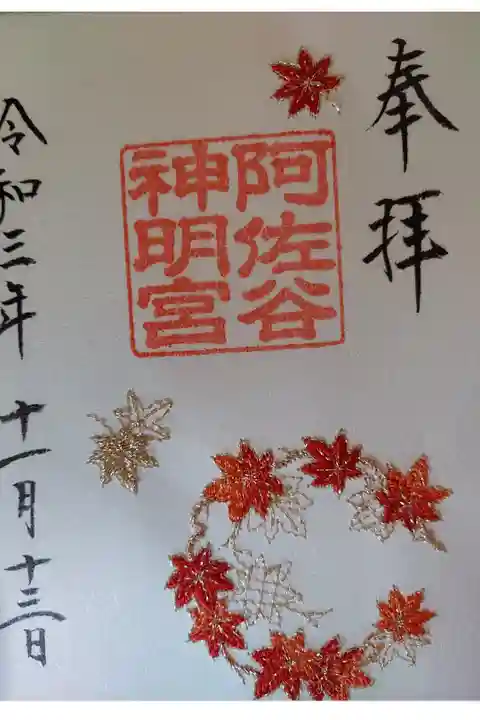 奉拝
阿佐谷
神明宮
令和三年十一月十三日